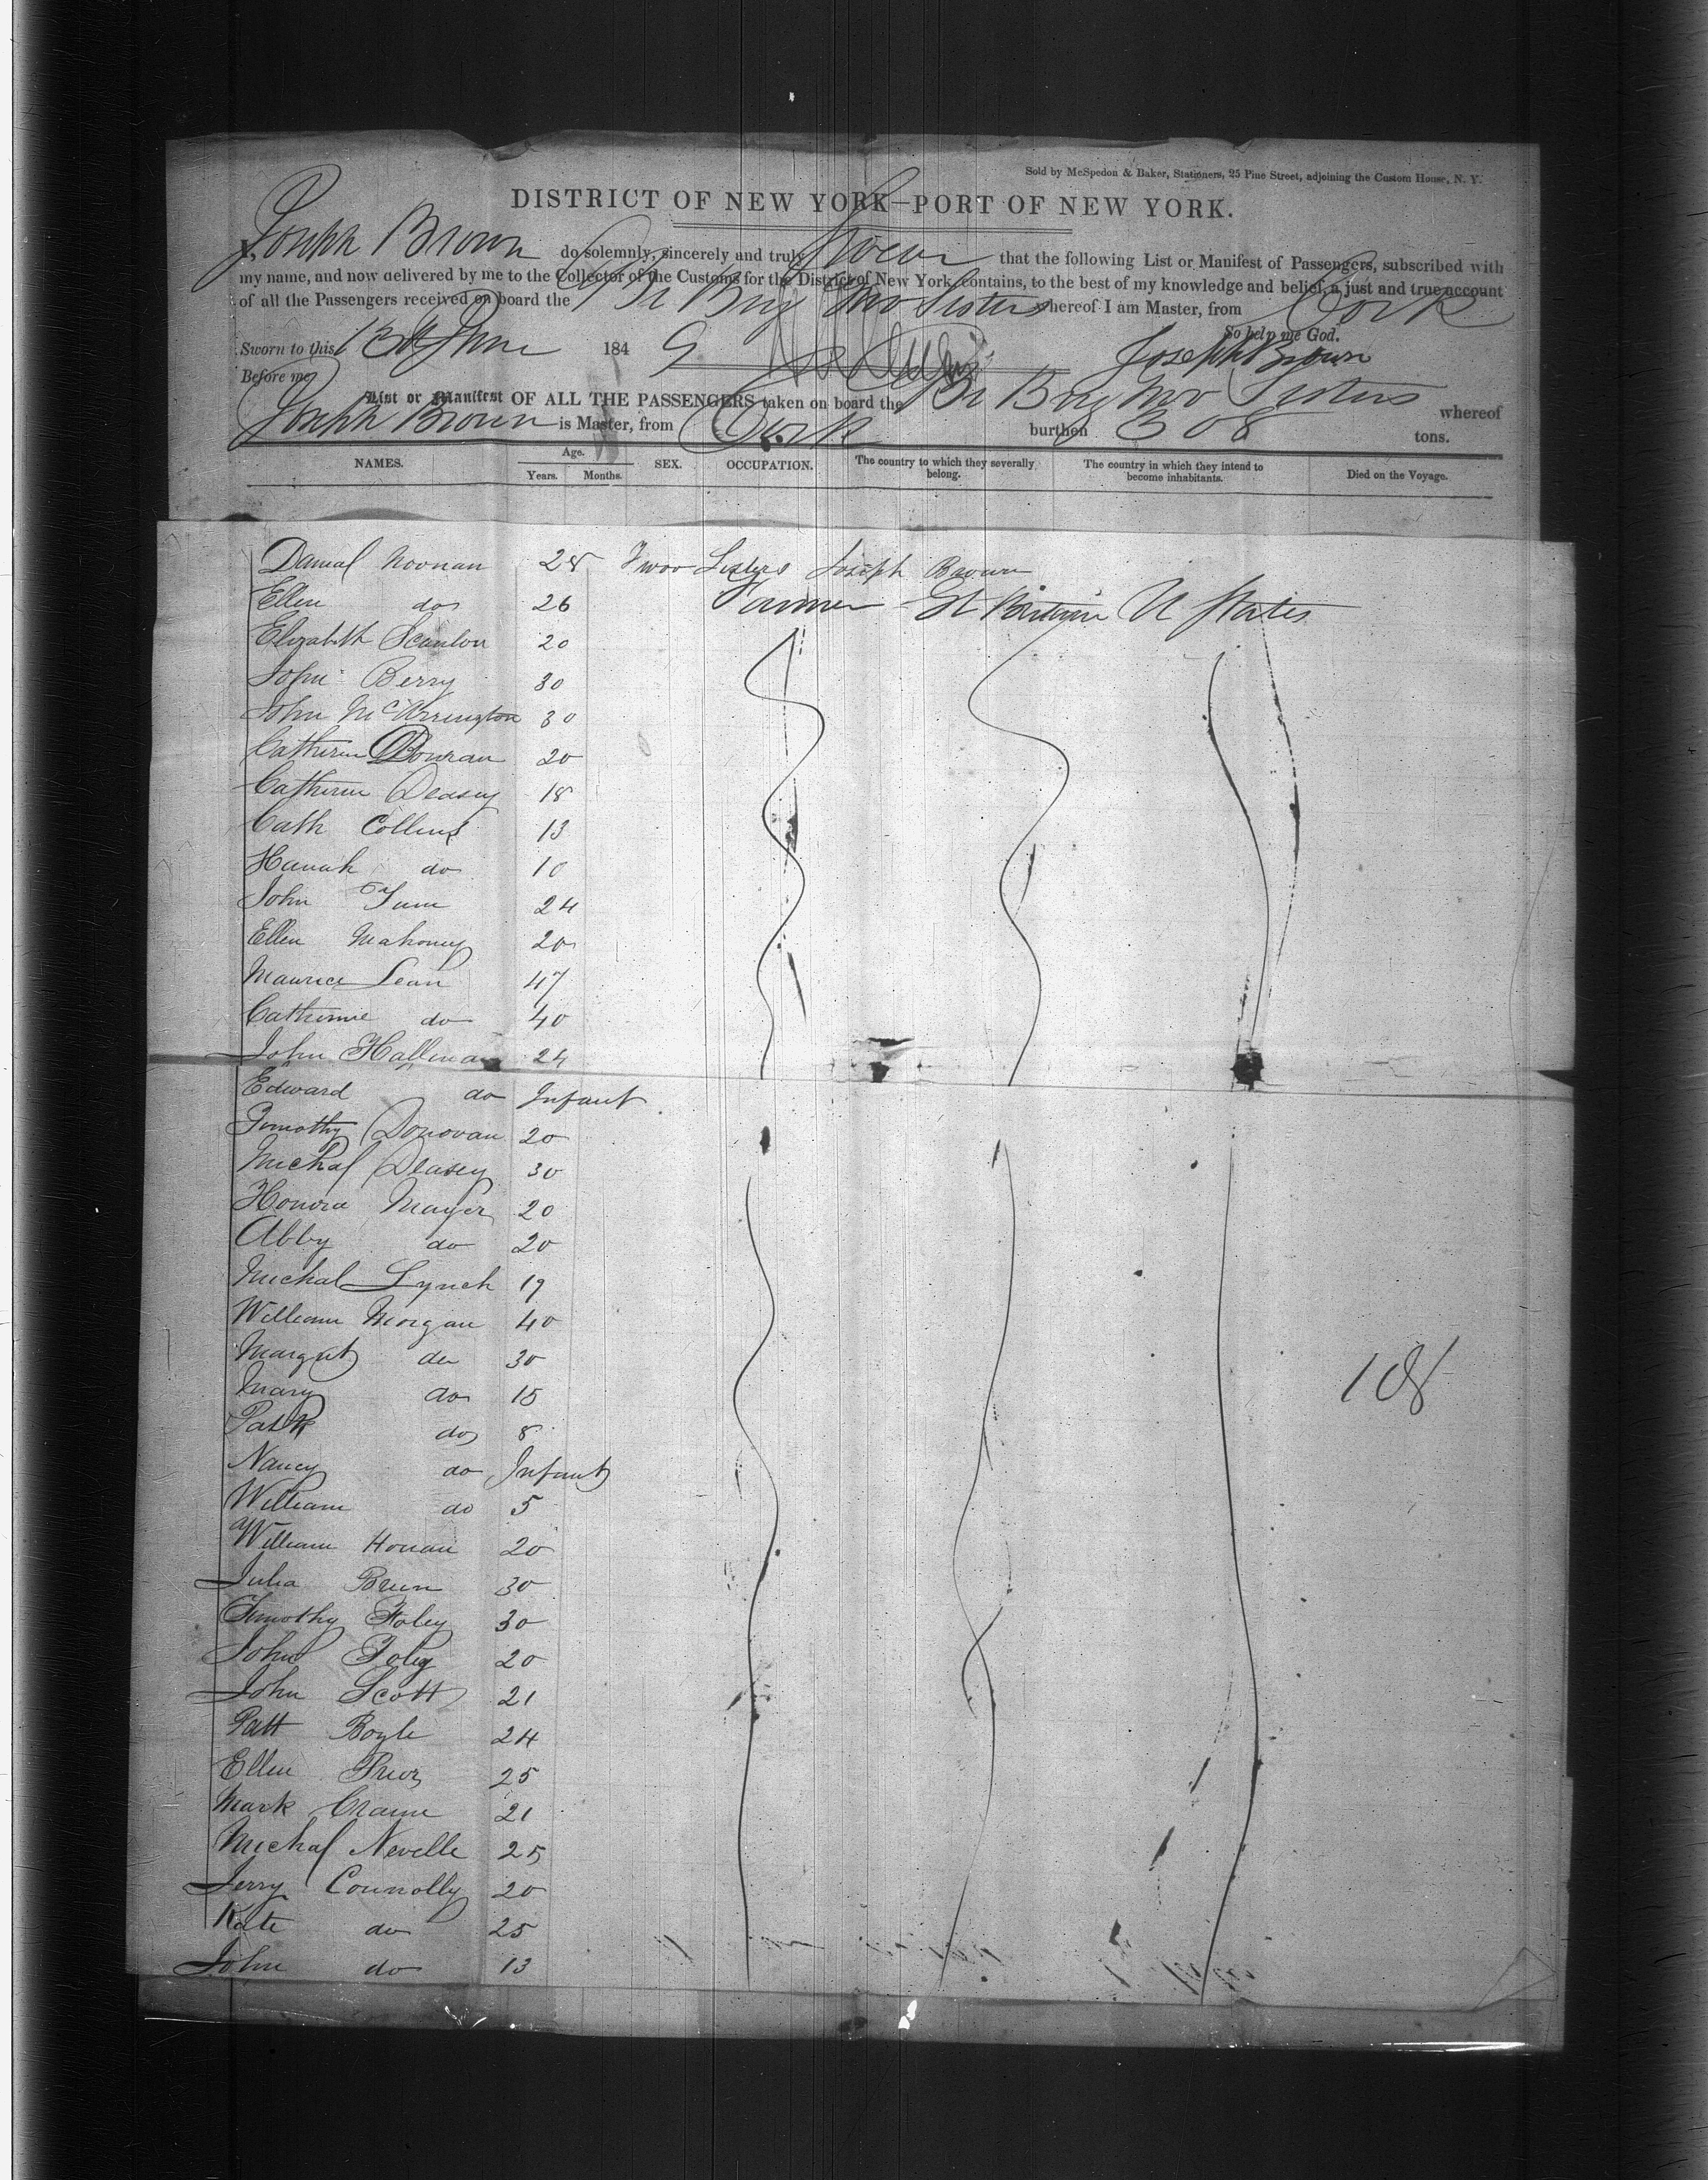 Sold by McSpedon & Baker, Stationers, 25 Pine Street, adjoining the Custom House, N. Y.
DISTRICT OF NEW YORK—PORT OF NEW YORK.
I, Joseph Brown do solemnly, sincerely and truly Swear that the following List or Manifest of Passengers, subscribed with
my name, and now delivered by me to the Collector of the Customs for the District of New York, contains, to the best of my knowledge and belief, a just and true account
of all the Passengers received on board the Br Brig Two Sisters whereof I am Master, from Cork
So help me God.
Sworn to this 13th June 1849 Joseph Brown
Before me
List or Manifest OF ALL THE PASSENGERS taken on board the Br Brig Two Sisters whereof
Joseph Brown is Master, from Cork burthen 308 tons.
NAMES. Age. Years. Months. SEX. OCCUPATION. The country to which they severally belong. The country in which they intend to become inhabitants. Died on the Voyage.
Danial Noonan 28 Twoo Sisters Joseph Brown
Ellen do 26 Farmer Gt Britain U States
Elizabeth Scanlon 20
John Berry 30
John McArrington 30
Catherin 20
Catherin Deasey 18
Cath Collins 13
Hanah do 10
John 24
Ellen Mahoney 20
Maurice Lean 47
Catherine do 40
John Hallinan 24
Edward do Infant
Timothy Donovan 20
Michal Deasey 30
Honora Mayer 20
Abby do 20
Michal Lynch 19
William Morgan 40
Margret do 30
Mary do 15
Patk do 8
Nancy do Infant
William do 5
William Honan 20
Julia Breen 30
Timothy Foley 30
John Foley 20
John Scott 21
Patt Boyle 24
Ellen Prior 25
Mark 21
Michal Nevelle 25
Jerry Connolly 20
Kate do 25
John do 13
108